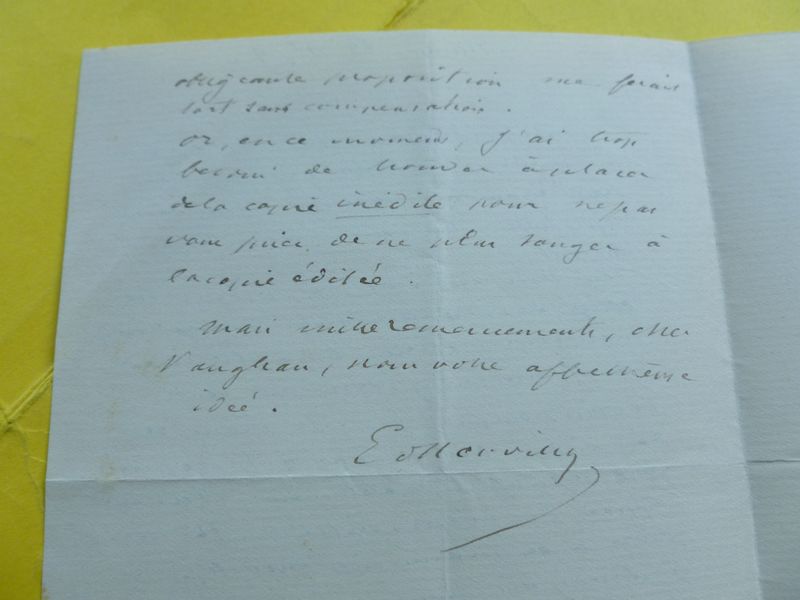 obligeante proposition me ferait
tort sans compensation.
or, en ce moment, j'ai trop
besoin de trouver à placer
de la copie inédite pour ne pas
vous prier de ne plus songer à
la copie éditée.
mais mille remerciements, cher
Vaughan, pour votre affectueuse
idée.
E d'Hervilly